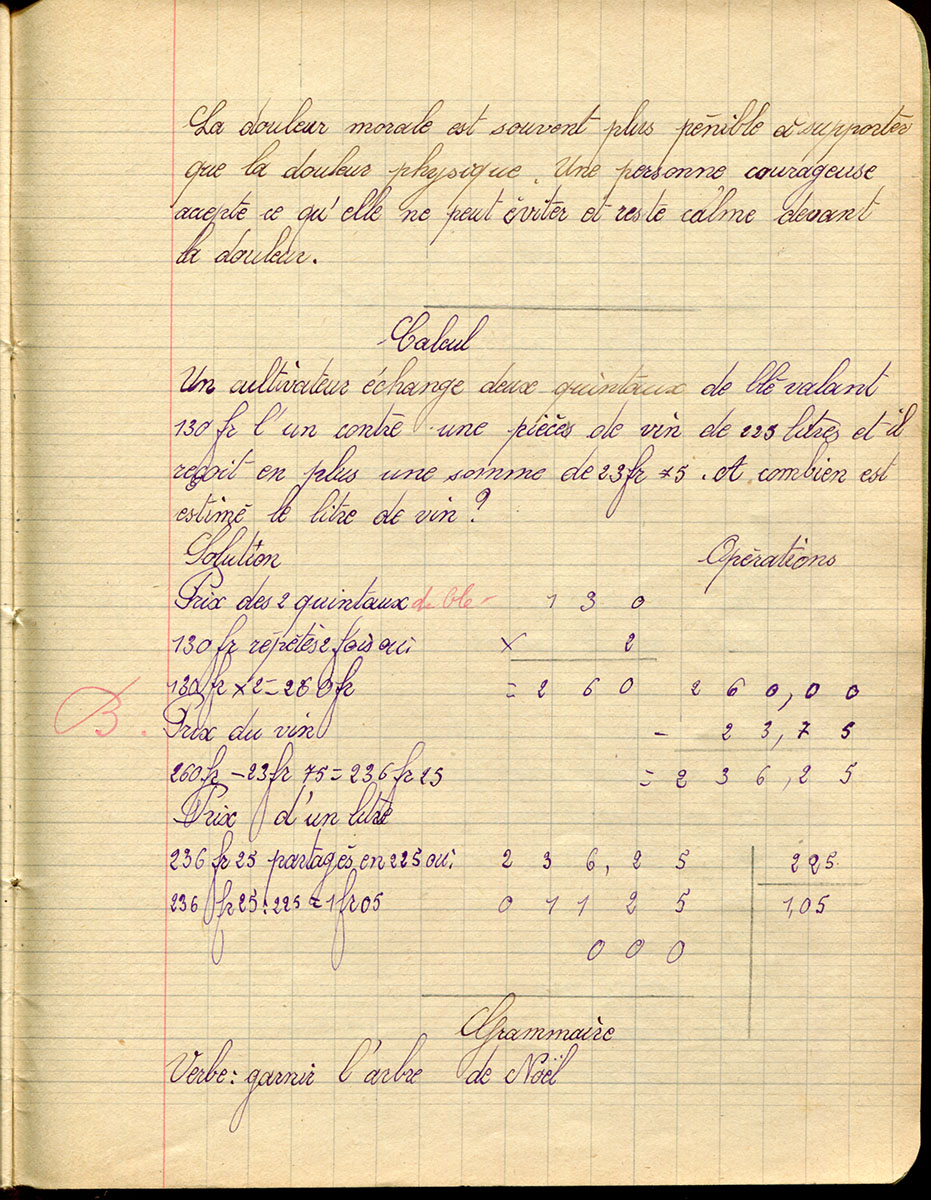 La douleur morale est souvent plus pénible à supporter
que la douleur physique. Une personne courageuse
accepte ce qu'elle ne peut éviter et reste calme devant
la douleur.
Calcul
Un cultivateur échange deux quintaux de blé valant
130 fr l'un contre une pièces de vin de 225 litres et il
reçoit en plus une somme de 23 fr 75. A combien est
estimé le litre de vin ?
Solution Opérations
Prix des 2 quintaux de blé 1 3 0
130 fr répétés 2 fois ou : × 2
130 fr × 2 = 260 fr = 2 6 0 2 6 0,0 0
B. Prix du vin - 2 3,7 5
260 fr - 23 fr 75 = 236 fr 25 = 2 3 6,2 5
Prix d'un litre
236 fr 25 partagés en 225 ou : 2 3 6,2 5 225
236 fr 25 : 225 = 1 fr 05 0 1 1 2 5 1,05
0 0 0
Grammaire
Verbe : garnir l'arbre de Noël